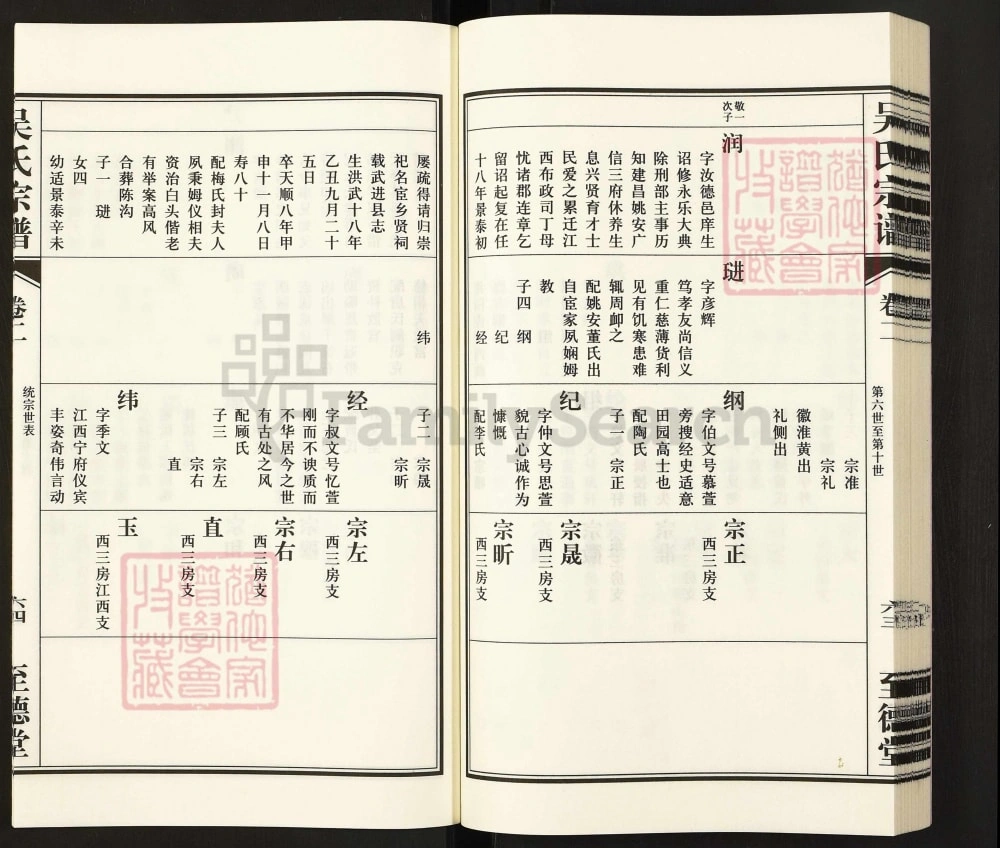 吴氏宗谱
卷二
第六世至第十世
六三
至德堂
敬一
次子
润
字汝德邑庠生
诏修永乐大典
除刑部主事历
知建昌姚安广
信三府休养生
息兴贤育才士
民爱之累迁江
西布政司丁母
忧诸郡连章乞
留诏起复在任
十八年景泰初
琎
字彦辉
笃孝友尚信义
重仁慈薄货利
见有饥寒患难
辄周卹之
配姚安董氏出
自宦家夙娴姆
教
子四 纲
纪
经
宗准
宗礼
徽淮黄出
礼侧出
纲
字伯文号慕萱
旁搜经史适意
田园高士也
配陶氏
子一 宗正
纪
字仲文号思萱
貌古心诚作为
慷慨
配李氏
宗正
西三房支
宗晟
西三房支
宗昕
西三房支
屡疏得请归崇
祀名宦乡贤祠
载武进县志
生洪武十八年
乙丑九月二十
五日
卒天顺八年甲
申十一月八日
寿八十
配梅氏封夫人
夙秉姆仪相夫
资治白头偕老
有举案高风
合葬陈沟
子一 琎
女四
幼适景泰辛未
纬
子二 宗晟
宗昕
经
字叔文号忆萱
刚而不谀质而
不华居今之世
有古处之风
配顾氏
子三 宗左
宗右
直
纬
字季文
江西宁府仪宾
丰姿奇伟言动
宗左
西三房支
宗右
西三房支
直
西三房支
玉
西三房江西支
吴氏宗谱
卷二
统宗世表
六四
至德堂
FamilySearch